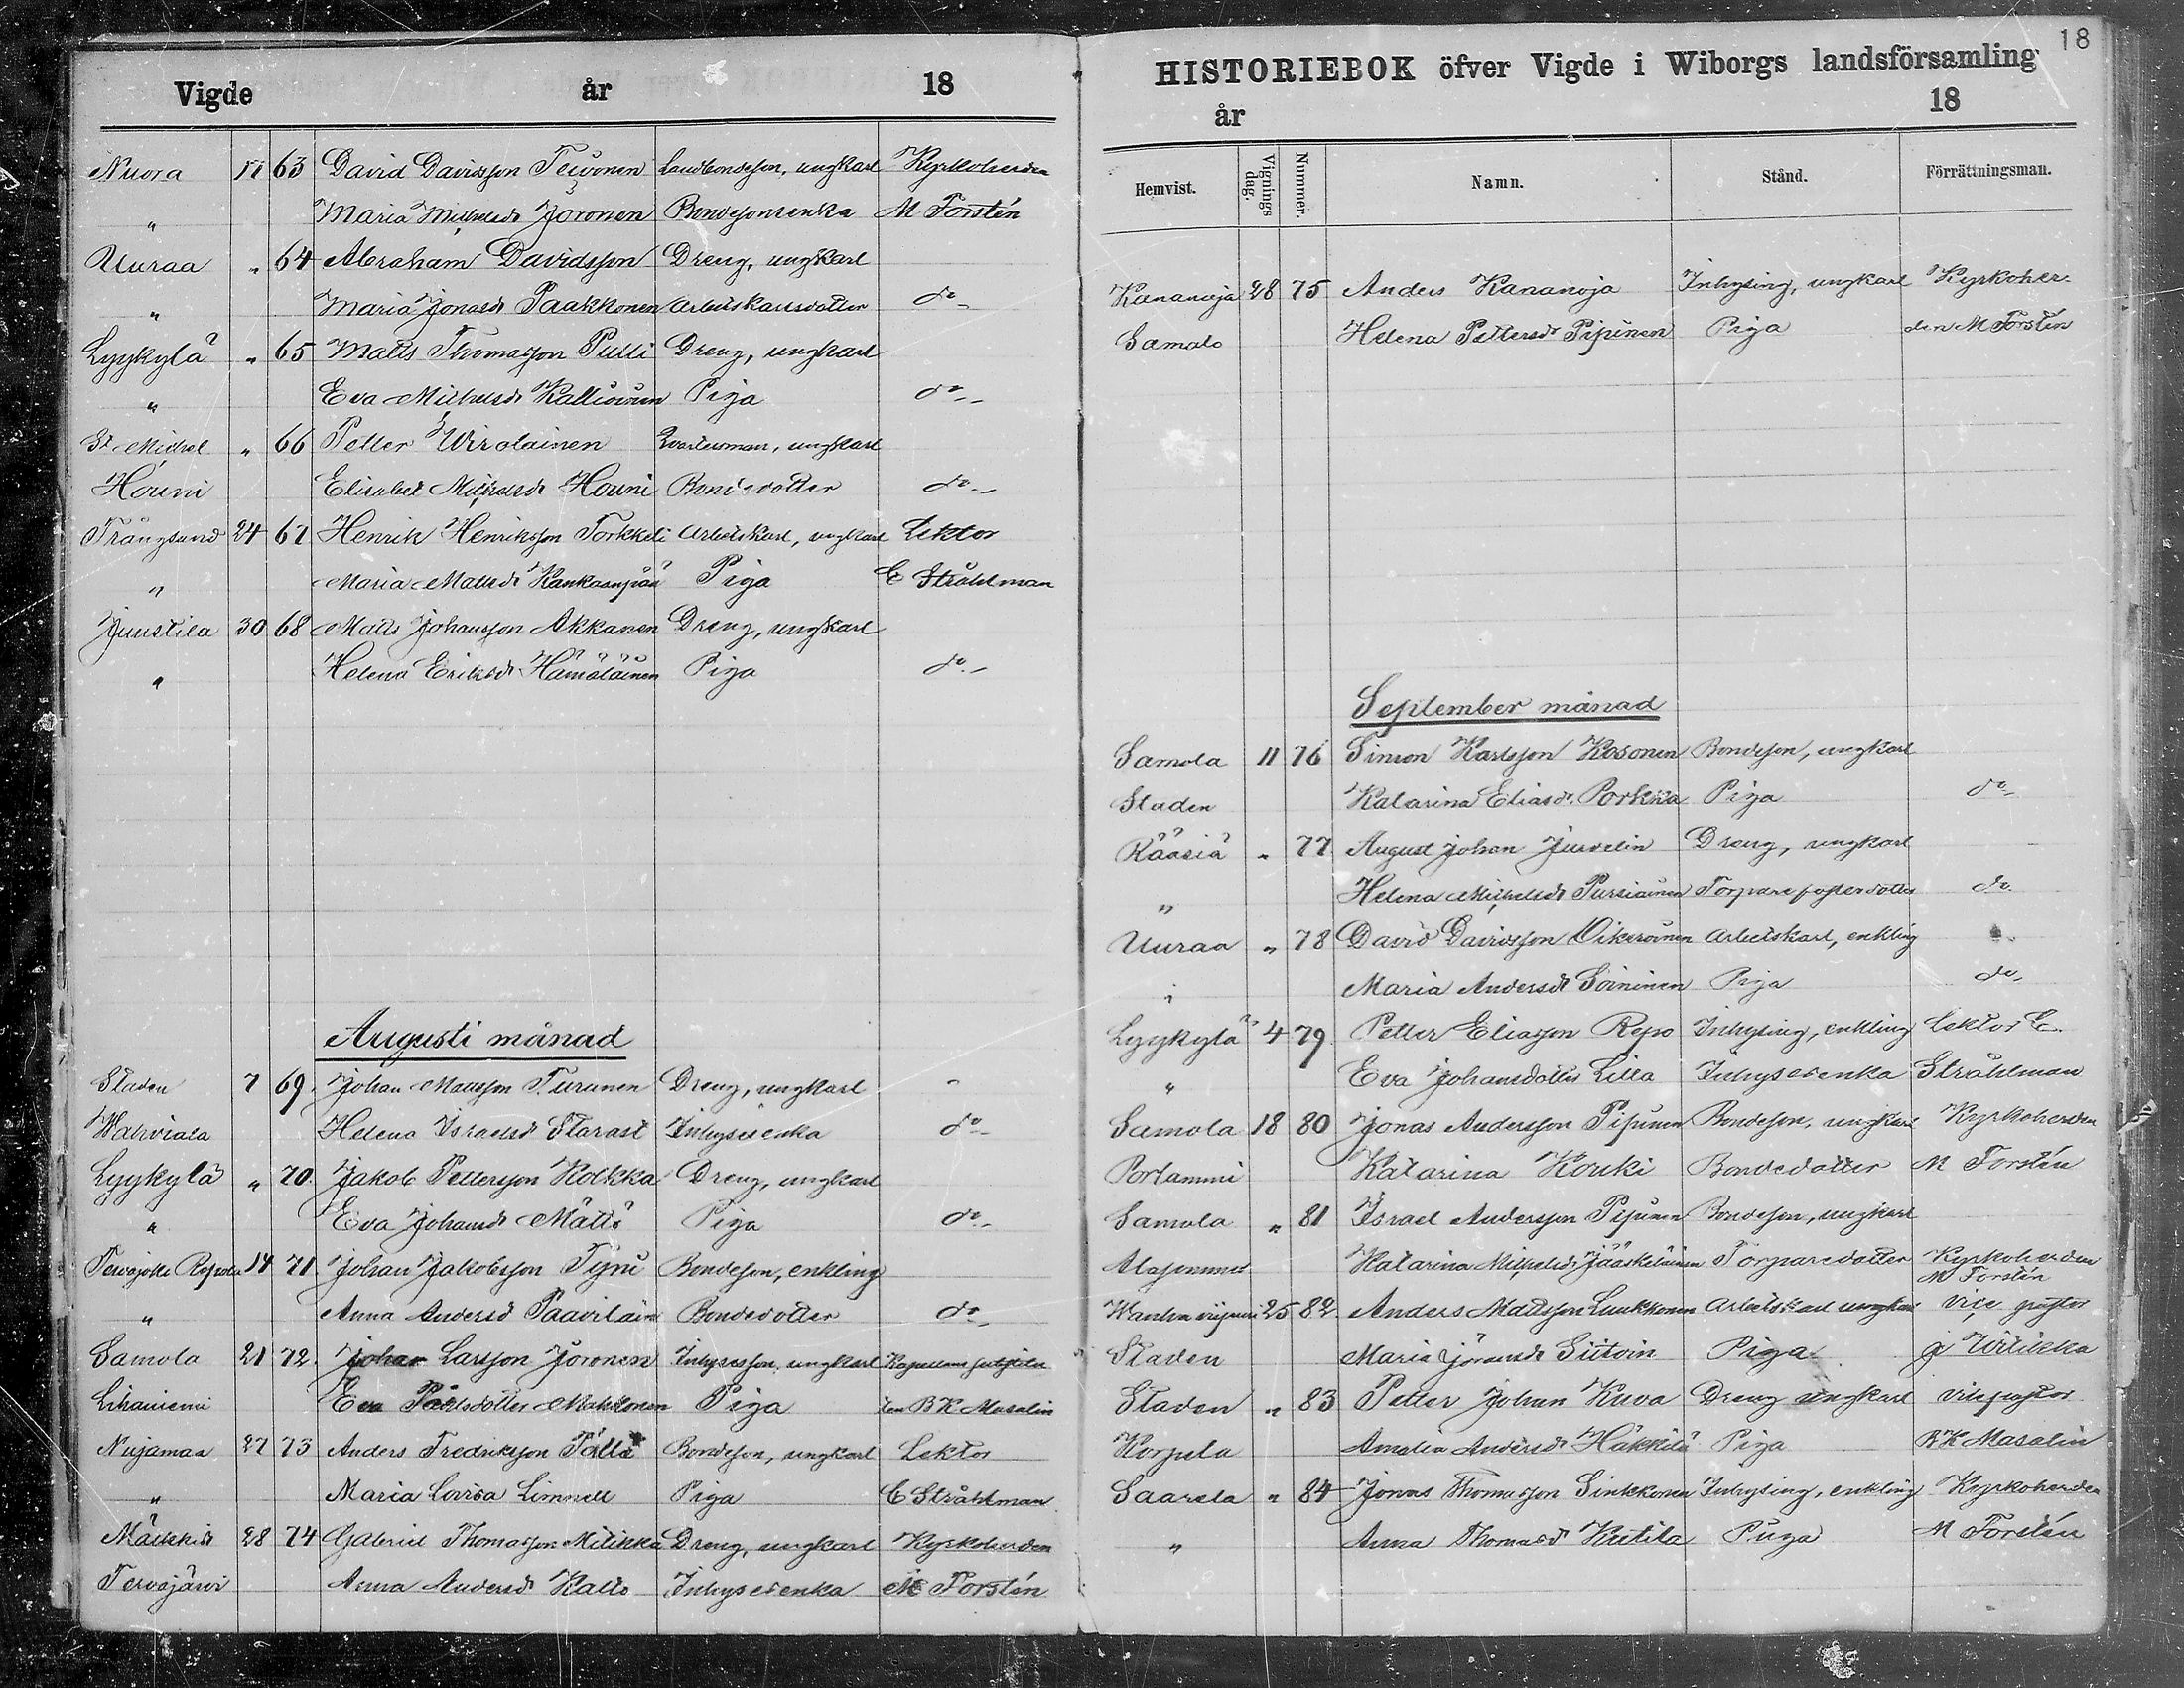 Vigde år 18
Nuora 17 63 David Davidsson Teivonen Landbondeson, ungkarl Kyrkoherden
" Maria Michelsdr Joronen Bondesonsenka M Forstén
Uuraa " 64 Abraham Davidsson Dreng, ungkarl
" Maria Jonasdr Paakkonen Arbetskarlsdotter do
Lyykylä " 65 Matts Thomasson Pulli Dreng, ungkarl
" Eva Michelsdr Kallioinen Piga do
St Michel " 66 Petter Wirolainen ungkarl
Houni Elisabet Michelsdr Houni Bondedotter do
Trångsund 24 67 Henrik Henriksson Torkkeli Arbetskarl, ungkarl Lektor
" Maria Mattsdr Kankaanpää Piga E Stråhlman
Juustila 30 68 Matts Johansson Akkanen Dreng, ungkarl
" Helena Eriksdr Hämäläinen Piga do
Augusti månad
Staden 7 69. Johan Mattsson Turunen Dreng, ungkarl
Wahviala Helena Israelsd Starast Inhysesenka do
Lyykylä " 70. Jakob Pettersson Kolkka Dreng, ungkarl
" Eva Johansdr Mättö Piga do
Tervajoki 14 71. Johan Jakobsson Tyni Bondeson, enkling
" Anna Andersd Paavilain Bondedotter do
Samola 21 72. Johan Larsson Joronen Inhysesson, ungkarl
Lihaniemi Eva Påvlsdotter Mahkonen Piga BK Masalin
Nuijamaa 27 73 Anders Fredriksson Pällä Bondeson, ungkarl Lektor
" Maria Lovisa Limnell Piga E Stråhlman
28 74 Gabriel Thomasson Mitikka Dreng, ungkarl Kyrkoherden
Tervajärvi Anna Andersdr Kallo Inhysesenka M Forstén
18
HISTORIEBOK öfver Vigde i Wiborgs landsförsamling
år 18
Hemvist. Vignings dag. Nummer. Namn. Stånd. Förrättningsman.
Kananoja 28 75 Anders Kananoja Inhysing, ungkarl Kyrkoher-
Samola Helena Pettersdr Pipinen Piga den M Forstén
September månad
Samola 11 76 Simon Karlsson Kosonen Bondeson, ungkarl
Staden Katarina Eliasdr Porkka Piga do
Rääsiä " 77 August Johan Juvelin Dreng, ungkarl
" Helena Michelsdr Pursiainen Torpare fosterdotter do
Uuraa " 78 David Davidsson Oikiainen Arbetskarl, enkling
" Maria Andersdr Soininen Piga do
Lyykylä 4 79 Petter Eliasson Repo Inhysing, enkling Lektor E.
" Eva Johansdotter Lilla Inhysesenka Stråhlman
Samola 18 80 Jonas Andersson Pipinen Bondeson, ungkarl Kyrkoherden
Portammi Katarina Kouki Bondedotter M Forstén
Samola " 81 Israel Andersson Pipinen Bondeson, ungkarl
Alasommee Katarina Michelsdr Jääskeläinen Torparedotter Kyrkoherden
M Forstén
25 82. Anders Mattsson Luukkonen Arbetskarl ungkarl vice pastor
Staden Maria Siitoin Piga
Staden " 83 Petter Johan Kuva Dreng ungkarl vicepastor
Korpela Amalia Andersdr Häkkilä Piga BK Masalin
Saarela " 84 Jonas Thomasson Sinkkonen Inhysing, enkling Kyrkoherden
" Anna Thomasd Kutila Piga M Forstén